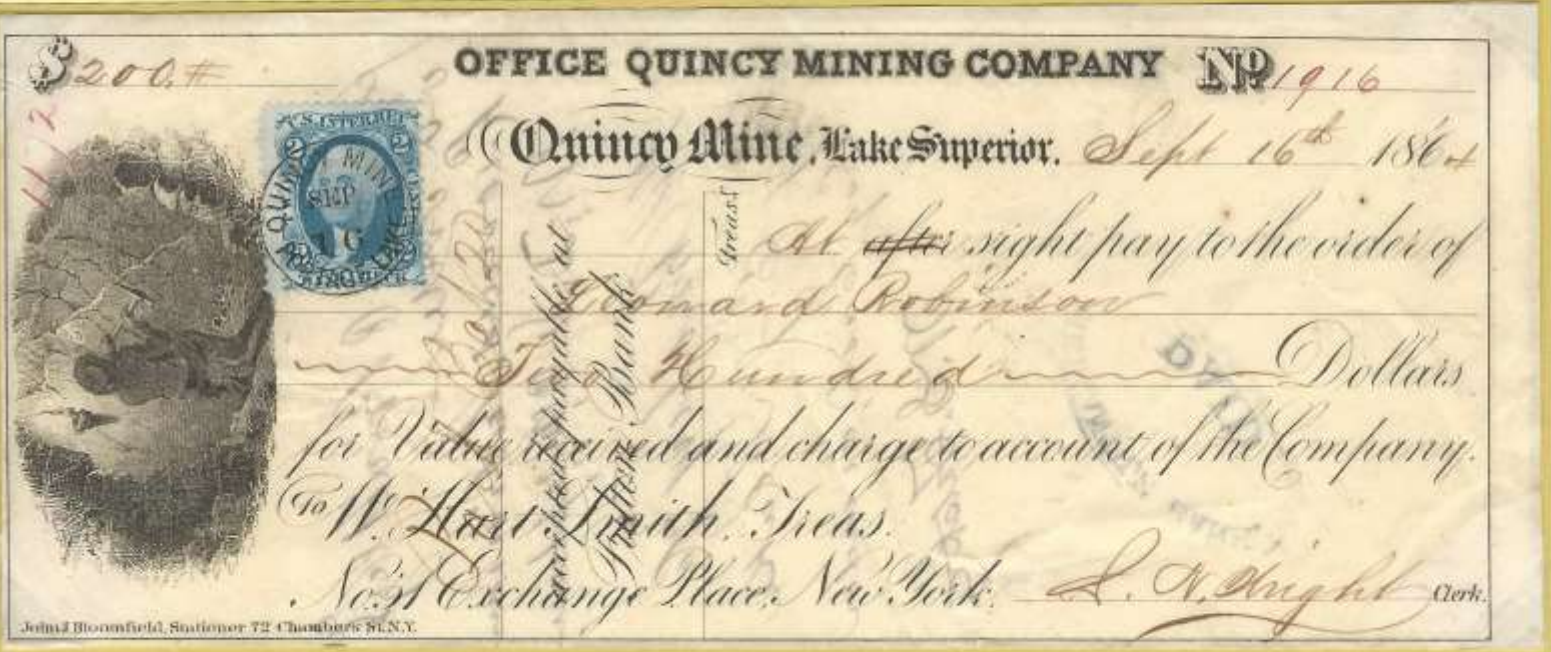 $ 200.#
OFFICE QUINCY MINING COMPANY No. 1916
Quincy Mine, Lake Superior. Sept 16th 1864
U.S. INTER. REV.
2 2
QUINCY MINE
SEP
16
LAKE
At after sight pay to the order of
Leonard Robinson
Two Hundred Dollars
for Value received and charge to account of the Company.
To W. Hart Smith, Treas.
Exchange Place, New York.
S. N. Wright Clerk.
Accepted payable at
Bank
Treas.
1172
PAID
John J Bloomfield, Stationer 72 Chambers St. N.Y.